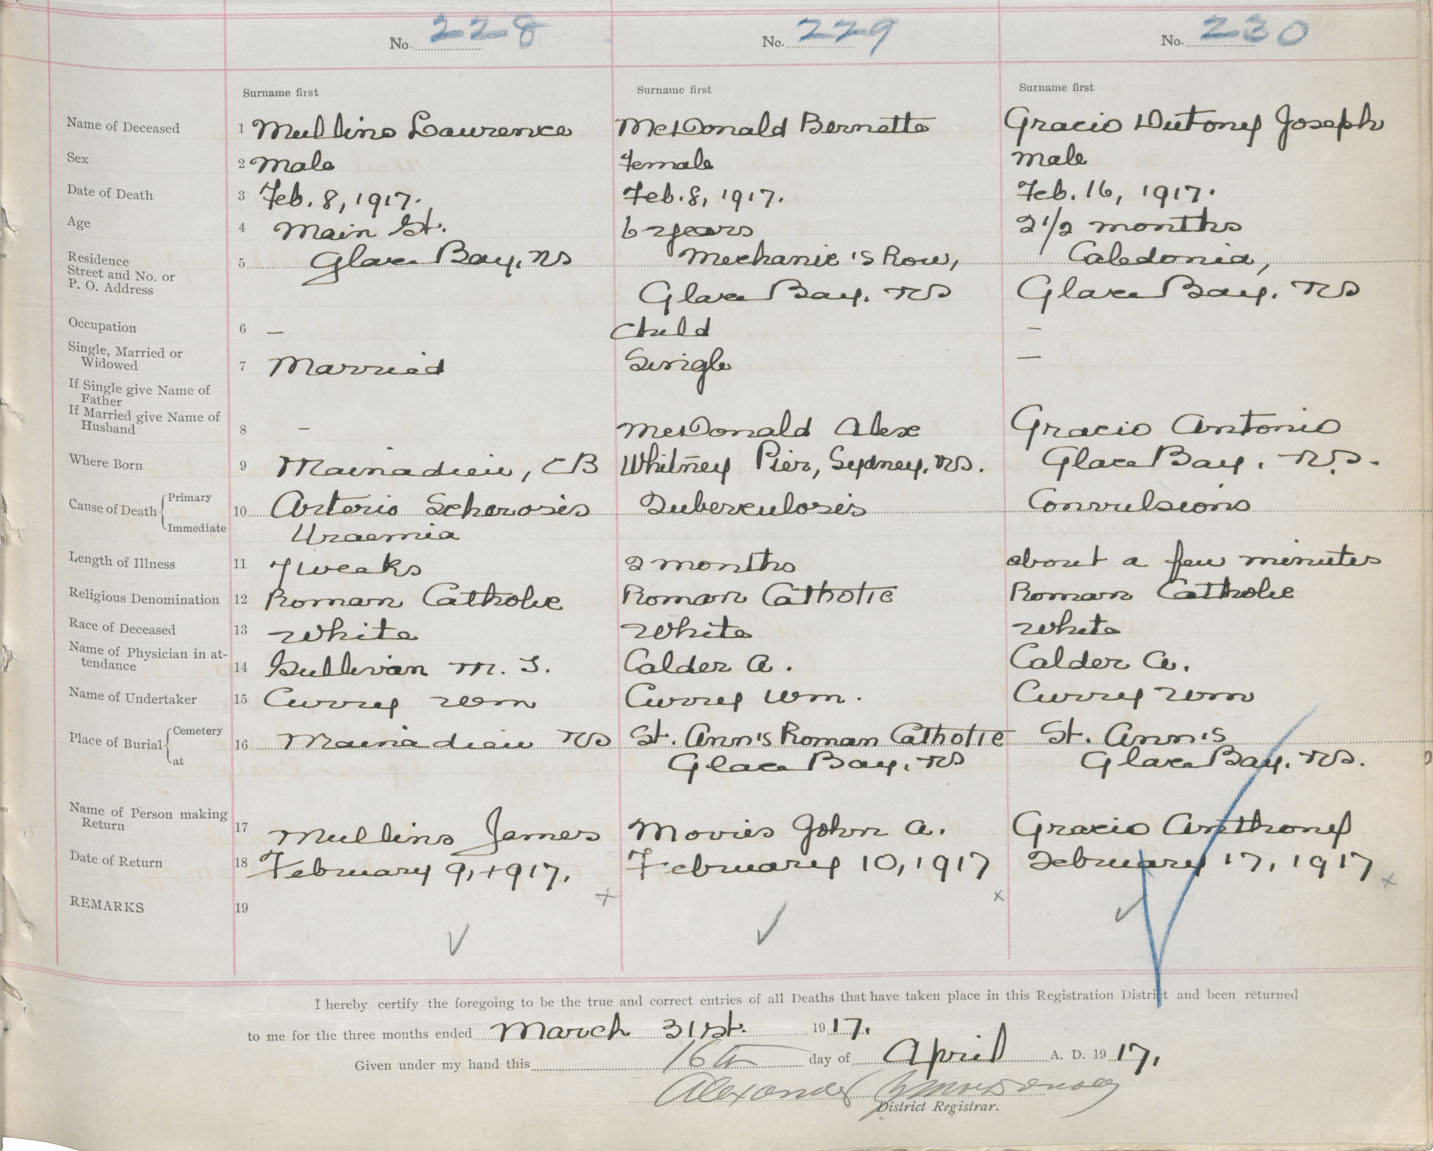 No. 228
No. 229
No. 230
Surname first
Surname first
Surname first
Name of Deceased 1 Mullins Lawrence McDonald Bernette Gracio Joseph
Sex 2 Male Female Male
Date of Death 3 Feb. 8, 1917. Feb. 8, 1917. Feb. 16, 1917.
Age 4 Main St. 6 years 2 1/2 months
Residence
Street and No. or
P. O. Address
5 Glace Bay, NS Mechanic's Row, Caledonia,
Glace Bay, NS Glace Bay, NS
Occupation 6 — Child —
Single, Married or
Widowed
7 Married Single —
If Single give Name of
Father
If Married give Name of
Husband
8 — McDonald Alex Gracio Antonio
Where Born 9 Mainadieu, CB Whitney Pier, Sydney, NS. Glace Bay, NS.
Cause of Death { Primary
Immediate
10 Arterio Sclerosis Tuberculosis Convulsions
Uraemia
Length of Illness 11 7 weeks 2 months about a few minutes
Religious Denomination 12 Roman Catholic Roman Catholic Roman Catholic
Race of Deceased 13 White White White
Name of Physician in at-
tendance
14 Sullivan M. T. Calder A. Calder A.
Name of Undertaker 15 Currey Wm Currey Wm. Currey Wm
Place of Burial { Cemetery
at
16 Mainadieu NS St. Ann's Roman Catholic St. Ann's
Glace Bay, NS Glace Bay, NS.
Name of Person making
Return
17 Mullins James Movies John A. Gracio Anthony
Date of Return 18 February 9, 1917. February 10, 1917 February 17, 1917
REMARKS 19
I hereby certify the foregoing to be the true and correct entries of all Deaths that have taken place in this Registration District and been returned
to me for the three months ended March 31st. 1917.
Given under my hand this 16th day of April A. D. 1917.
Alexander
District Registrar.